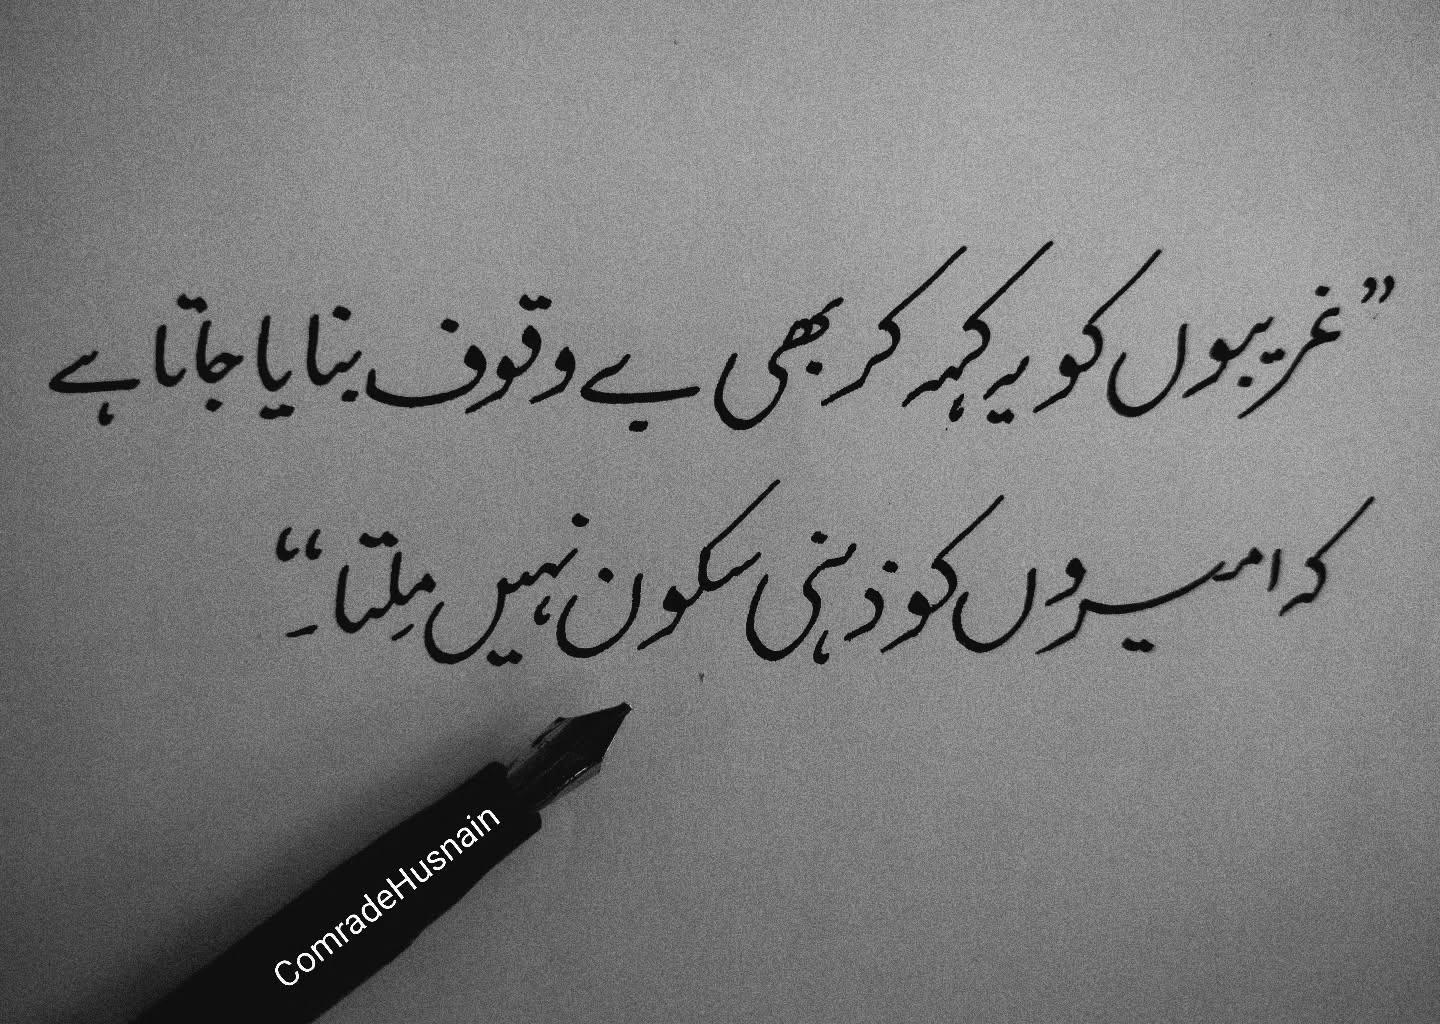 ”غریبوں کو یہ کہہ کر بھی بے وقوف بنایا جاتا ہے
کہ امیروں کو ذہنی سکون نہیں مِلتا۔“
ComradeHusnain